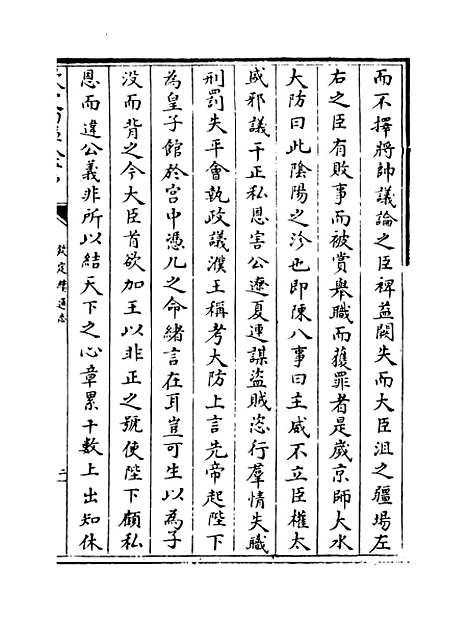 而不擇將帥議論之臣裨益闕失而大臣沮之疆場左
右之臣有敗事而被賞舉職而獲罪者是嵗京師大水
大防曰此陰陽之沴也即陳八事曰主威不立臣權太
盛邪議干正私恩害公遼夏連謀盜賊恣行羣情失職
刑罰失平會執政議濮王稱考大防上言先帝起陛下
為皇子館於宫中憑几之命緒言在耳豈可生以為子
没而背之今大臣首欲加王以非正之號使陛下顧私
恩而違公義非所以結天下之心章累十數上出知休
欽定續通志
二